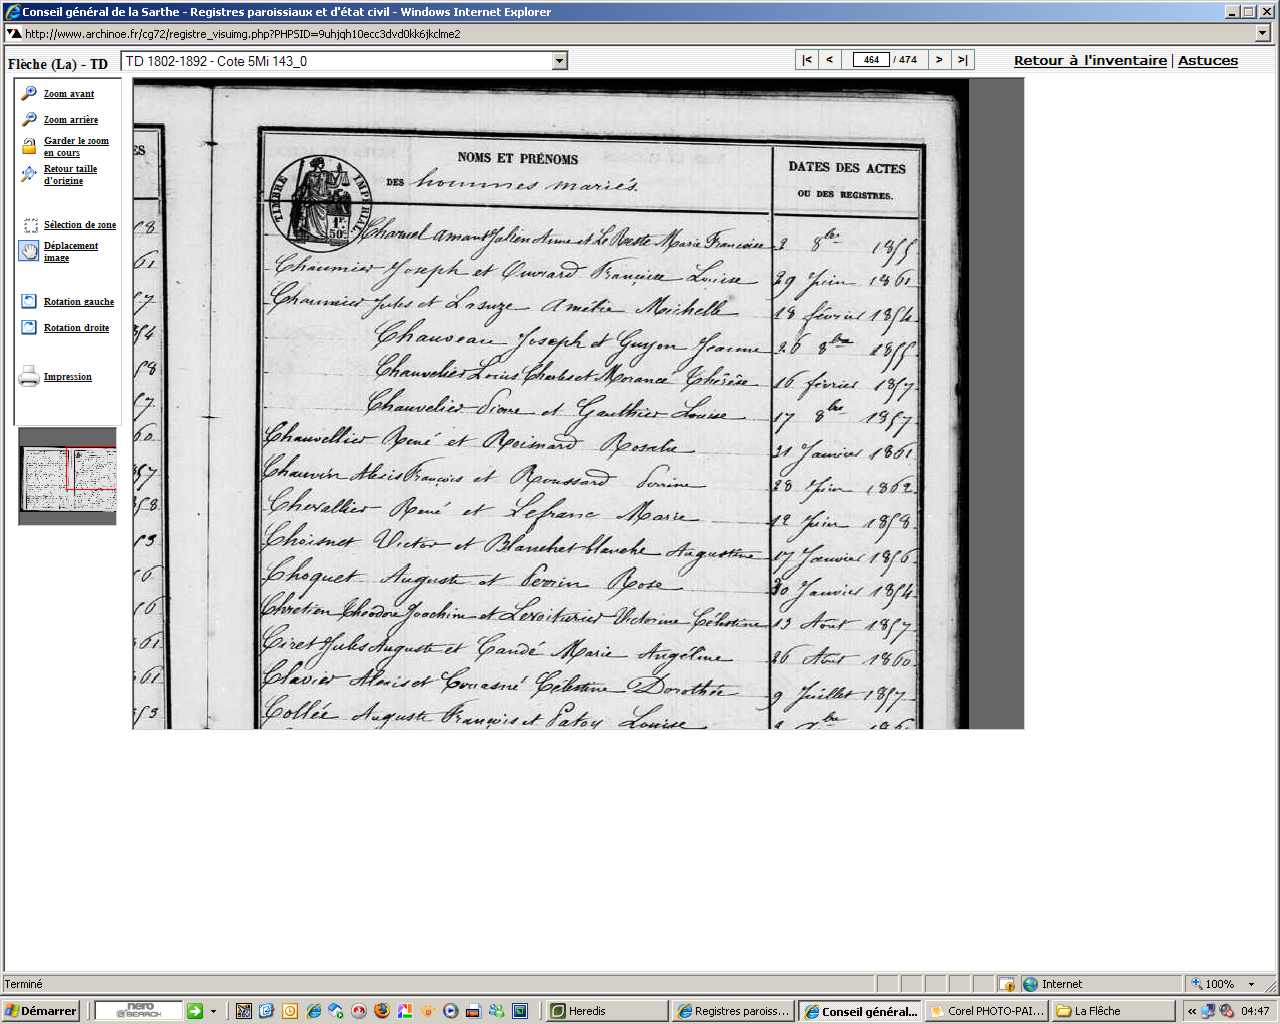 Conseil général de la Sarthe - Registres paroissiaux et d'état civil - Windows Internet Explorer
http://www.archinoe.fr/cg72/registre_visuimg.php?PHPSID=9uhjqh10ecc3dvd0kk6jkclme2
Flèche (La) - TD
TD 1802-1892 - Cote 5Mi 143_0
|< < 464 / 474 > >|
Retour à l'inventaire | Astuces
Zoom avant
Zoom arrière
Garder le zoom
en cours
Retour taille
d'origine
Sélection de zone
Déplacement
image
Rotation gauche
Rotation droite
Impression
NOMS ET PRÉNOMS
DES hommes mariés.
DATES DES ACTES
OU DES REGISTRES.
TIMBRE IMPÉRIAL
1F.
50c.
Charuel Amant Julien Anne et Le Marie Françoise 2 8bre 1855
Chaumier Joseph et Ouvrard Françoise Louise 29 Juin 1861
Chaumier Jules et Lasuze Amélie Michelle 18 février 1854
Chauveau Joseph et Guyon Jeanne 26 8bre 1855
Chauvelier Louis Charles et Morance Thérèse 16 février 1857
Chauvelier Pierre et Gauthier Louise 17 8bre 1857
Chauvellier René et Roimard Rosalie 21 Janvier 1861
Chauvin Alexis François et Roussard Perrine 28 Juin 1862
Chevallier René et Lefranc Marie 12 Juin 1858
Choisnet Victor et Blanchet blanche Augustine 17 Janvier 1856
Choquet Auguste et Perrin Rose 30 Janvier 1854
Chretien Théodore Joachim et Levoiturier Victorine Célestine 13 Aout 1857
Ciret Jules Auguste et Candé Marie Angéline 26 Aout 1860
Clavier Alexis et Couasné Célestine Dorothée 9 Juillet 1857
Collée Auguste François et Patoy Louise
Terminé
Internet
100%
Démarrer
nero
SEARCH
Heredis
Registres paroiss...
Conseil général...
Corel PHOTO-PAI...
La Flêche
04:47